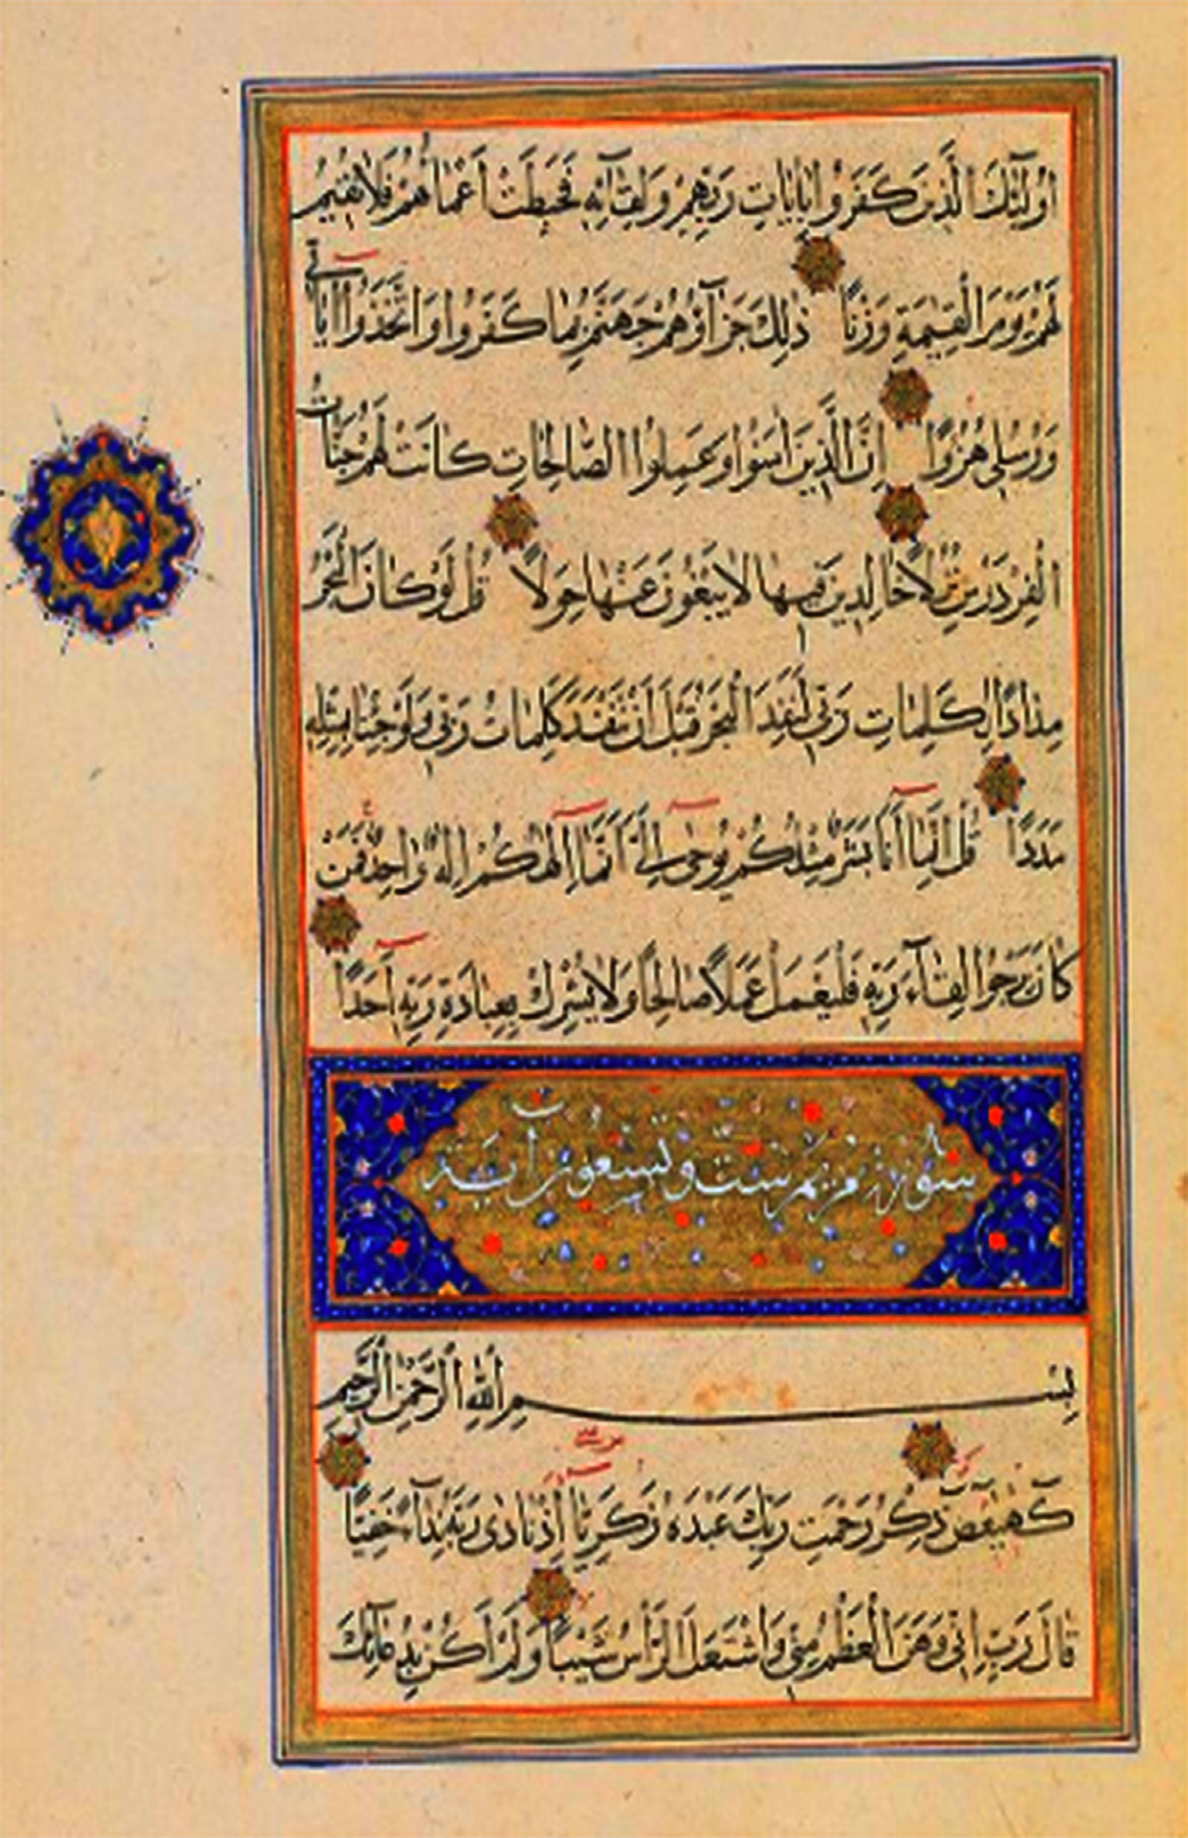 اُولٰئِكَ الَّذينَ كَفَرُوا بِاٰيَاتِ رَبِّهِمْ وَلِقَآئِهٖ فَحَبِطَتْ اَعْمَالُهُمْ فَلَا نُقيمُ
لَهُمْ يَوْمَ الْقِيٰمَةِ وَزْنًا ذٰلِكَ جَزَآؤُهُمْ جَهَنَّمُ بِمَا كَفَرُوا وَاتَّخَذُوا اٰيَاتي
وَرُسُلي هُزُوًا اِنَّ الَّذينَ اٰمَنُوا وَعَمِلُوا الصَّالِحَاتِ كَانَتْ لَهُمْ جَنَّاتُ
الْفِرْدَوْسِ نُزُلًا خَالِدينَ فيهَا لَا يَبْغُونَ عَنْهَا حِوَلًا قُلْ لَوْ كَانَ الْبَحْرُ
مِدَادًا لِكَلِمَاتِ رَبّي لَنَفِدَ الْبَحْرُ قَبْلَ اَنْ تَنْفَدَ كَلِمَاتُ رَبّي وَلَوْ جِئْنَا بِمِثْلِهٖ
مَدَدًا قُلْ اِنَّمَا اَنَا بَشَرٌ مِثْلُكُمْ يُوحٰى اِلَيَّ اَنَّمَا اِلٰهُكُمْ اِلٰهٌ وَاحِدٌ فَمَنْ
كَانَ يَرْجُوا لِقَآءَ رَبِّهٖ فَلْيَعْمَلْ عَمَلًا صَالِحًا وَلَا يُشْرِكْ بِعِبَادَةِ رَبِّهٖ اَحَدًا
سورة مريم ست وتسعون اية
بِسْمِ اللّٰهِ الرَّحْمٰنِ الرَّحيمِ
كٓهٰيٰعٓصٓ ذِكْرُ رَحْمَتِ رَبِّكَ عَبْدَهُ زَكَرِيَّا اِذْ نَادٰى رَبَّهُ نِدَآءً خَفِيًّا
قَالَ رَبِّ اِنّي وَهَنَ الْعَظْمُ مِنّي وَاشْتَعَلَ الرَّاْسُ شَيْبًا وَلَمْ اَكُنْ بِدُعَآئِكَ